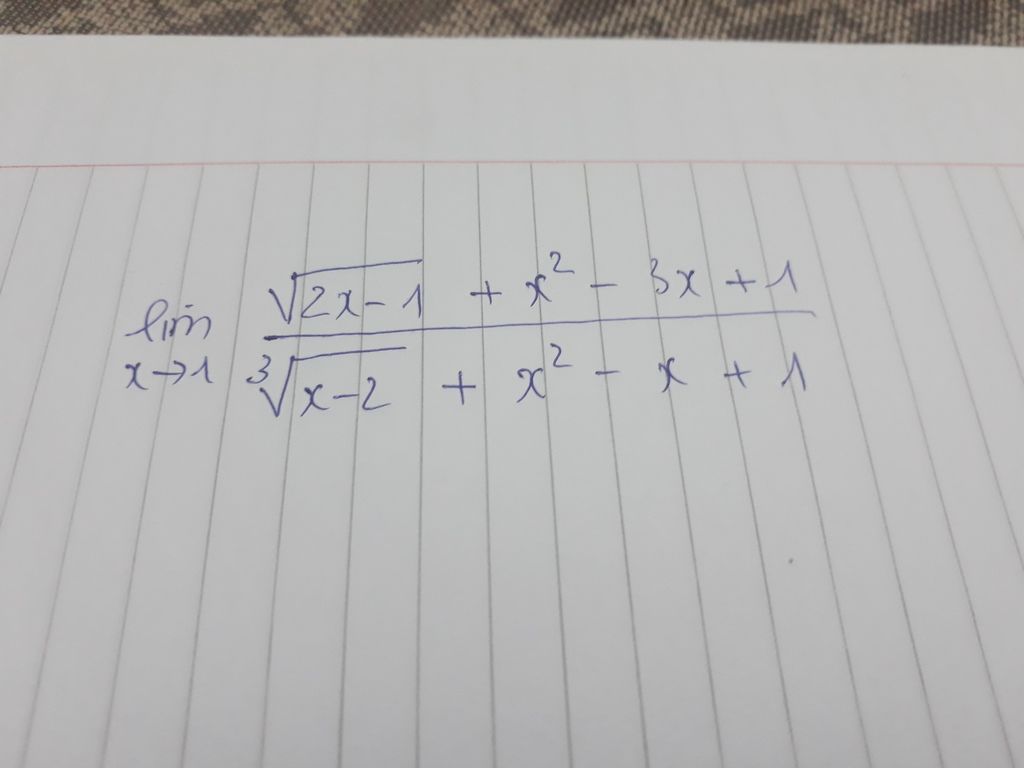 lim x→1 (√(2x-1) + x² - 3x + 1) / (∛(x-2) + x² - x + 1)